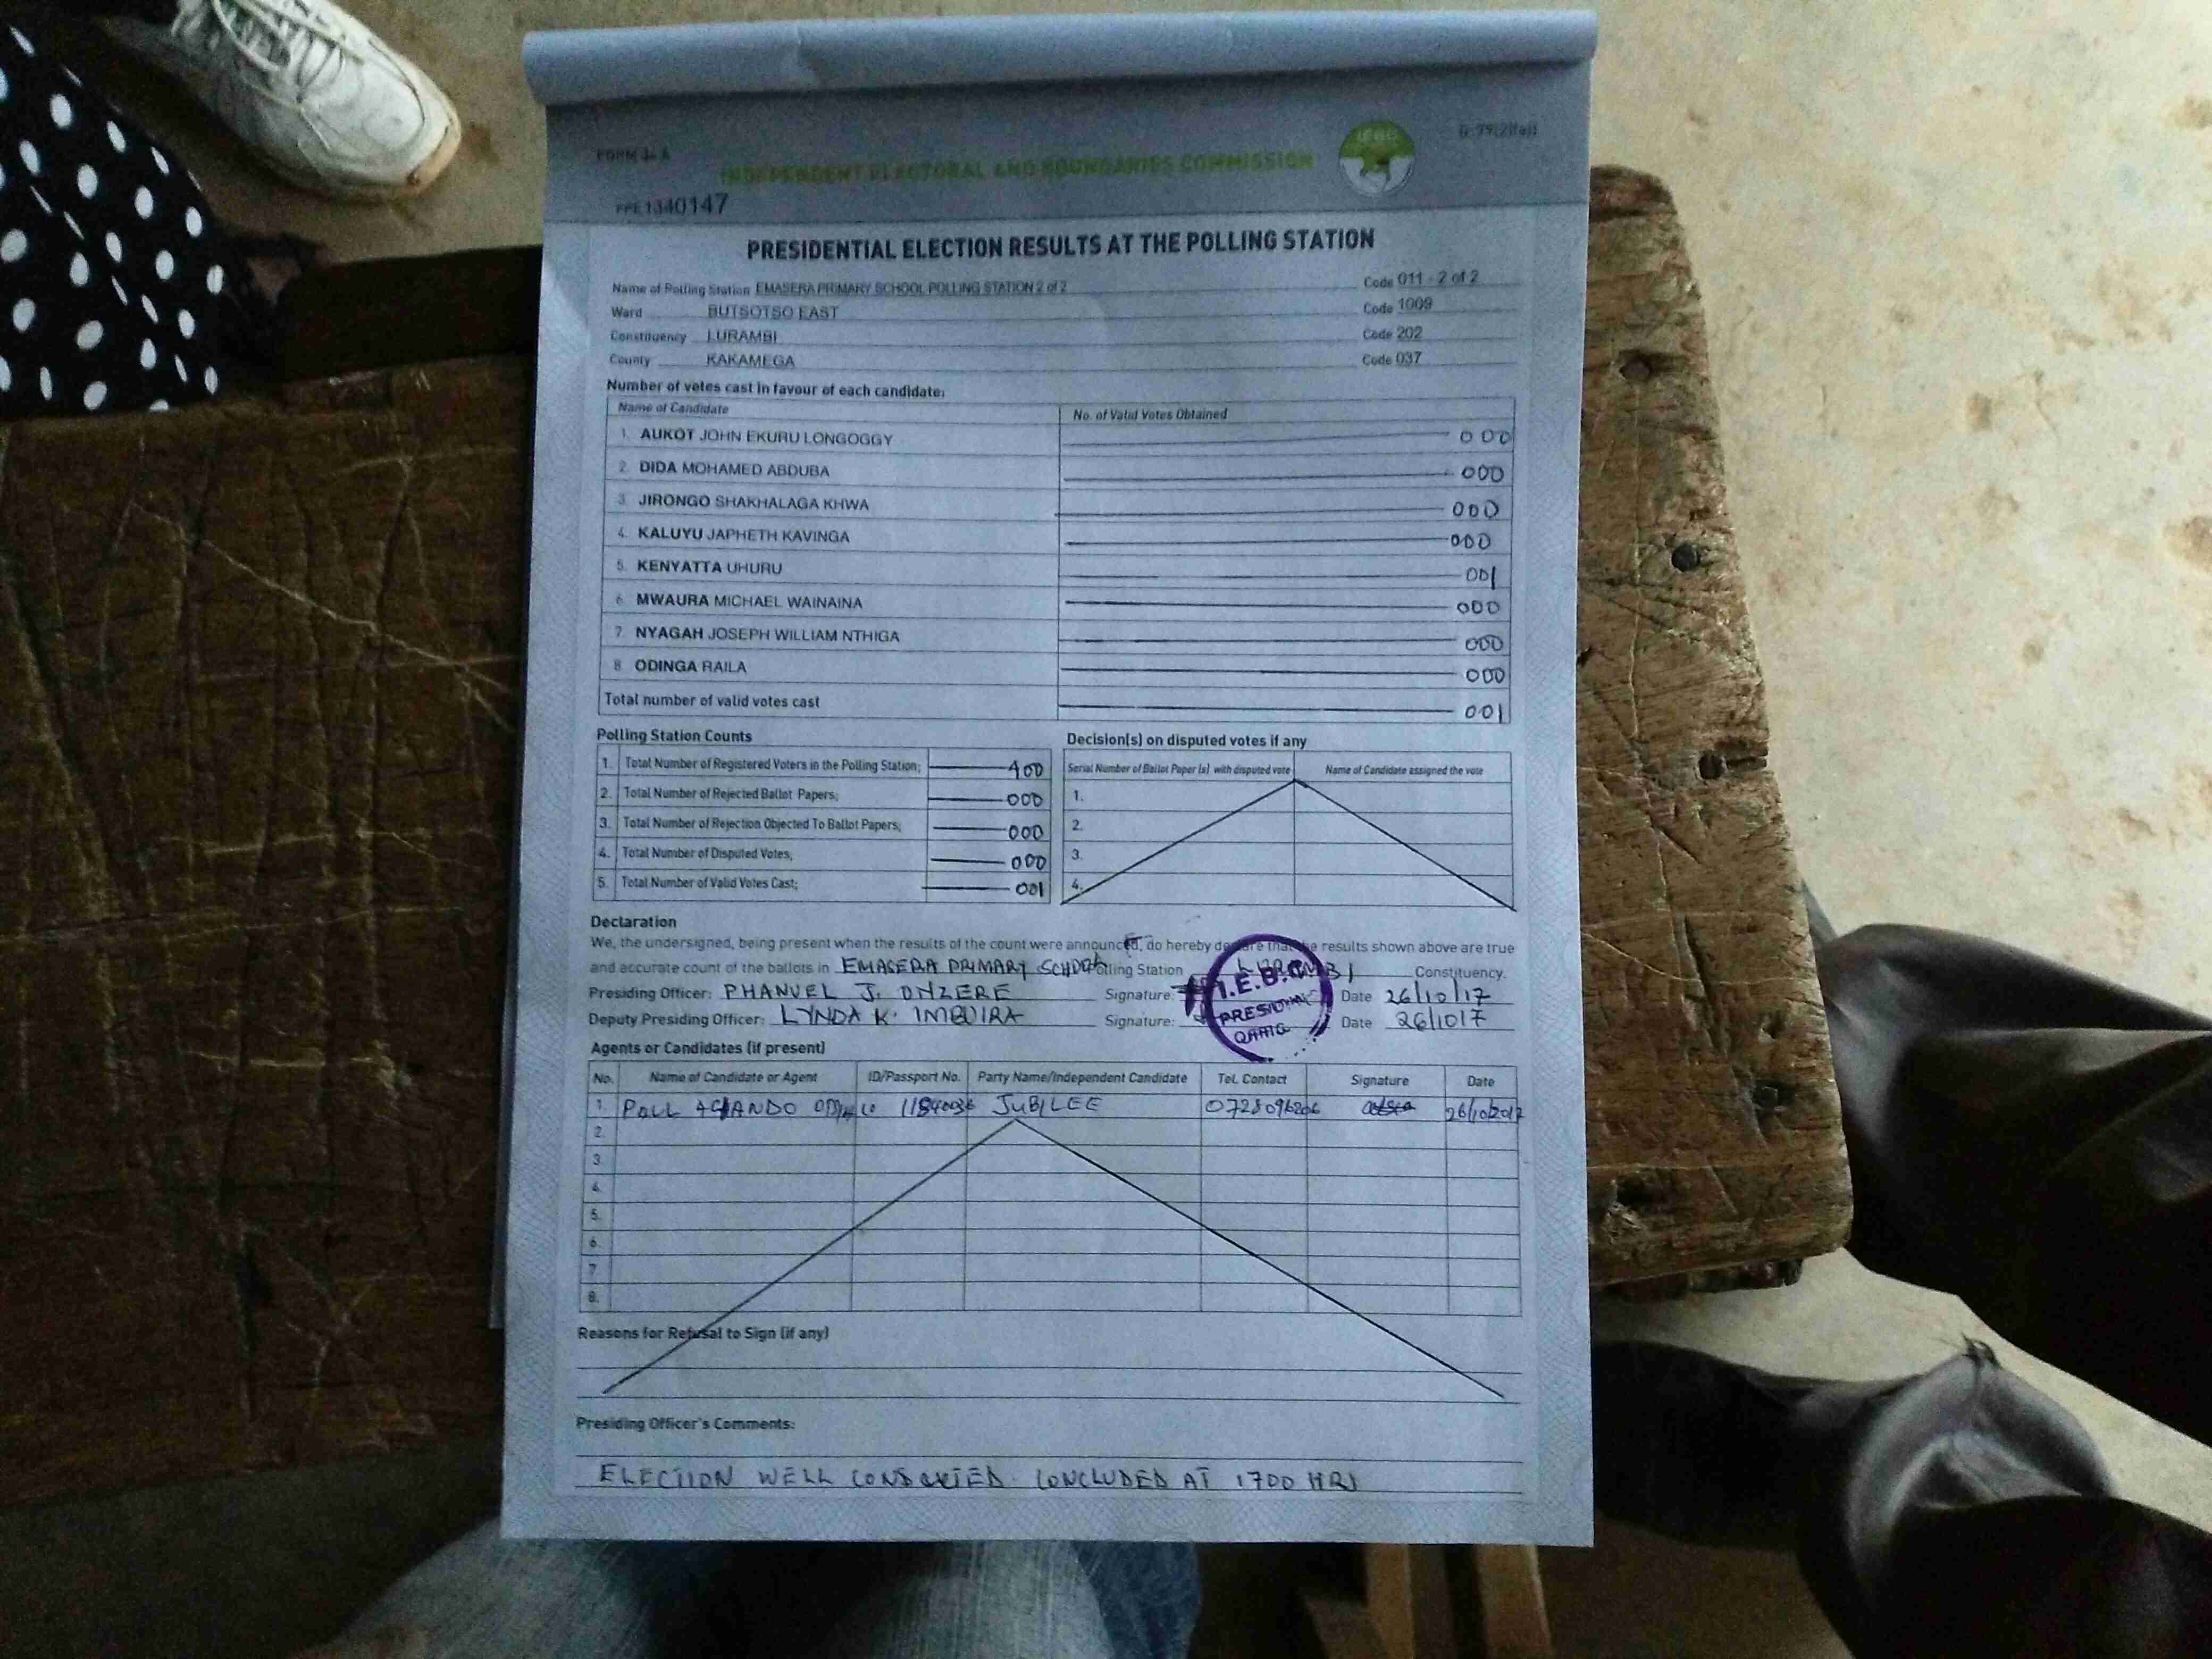 FORM 34 A
INDEPENDENT ELECTORAL AND BOUNDARIES COMMISSION
IEBC
PPE1340147
PRESIDENTIAL ELECTION RESULTS AT THE POLLING STATION
Name of Polling Station EMASERA PRIMARY SCHOOL POLLING STATION 2 of 2 Code 011 - 2 of 2
Ward BUTSOTSO EAST Code 1009
Constituency LURAMBI Code 202
County KAKAMEGA Code 037
Number of votes cast in favour of each candidate:
Name of Candidate No. of Valid Votes Obtained
1. AUKOT JOHN EKURU LONGOGGY 000
2. DIDA MOHAMED ABDUBA 000
3. JIRONGO SHAKHALAGA KHWA 000
4. KALUYU JAPHETH KAVINGA 000
5. KENYATTA UHURU 001
6. MWAURA MICHAEL WAINAINA 000
7. NYAGAH JOSEPH WILLIAM NTHIGA 000
8. ODINGA RAILA 000
Total number of valid votes cast 001
Polling Station Counts
1. Total Number of Registered Voters in the Polling Station; 400
2. Total Number of Rejected Ballot Papers; 000
3. Total Number of Rejection Objected To Ballot Papers; 000
4. Total Number of Disputed Votes; 000
5. Total Number of Valid Votes Cast; 001
Decision(s) on disputed votes if any
Serial Number of Ballot Paper (s) with disputed vote Name of Candidate assigned the vote
1.
2.
3.
4.
Declaration
We, the undersigned, being present when the results of the count were announced, do hereby declare that the results shown above are true
and accurate count of the ballots in EMASERA PRIMARY SCHOOL Polling Station LURAMBI Constituency.
Presiding Officer: PHANUEL J. ONZERE Signature: Date 26/10/17
Deputy Presiding Officer: LYNDA K. IMBUIRA Signature: Date 26/1017
I.E.B.C
Agents or Candidates (if present)
No. Name of Candidate or Agent ID/Passport No. Party Name/Independent Candidate Tel. Contact Signature Date
1. PAUL JUBILEE 26/10/2017
2.
3.
4.
5.
6.
7.
8.
Reasons for Refusal to Sign (if any)
Presiding Officer's Comments:
ELECTION WELL CONDUCTED. CONCLUDED AT 1700 HRS